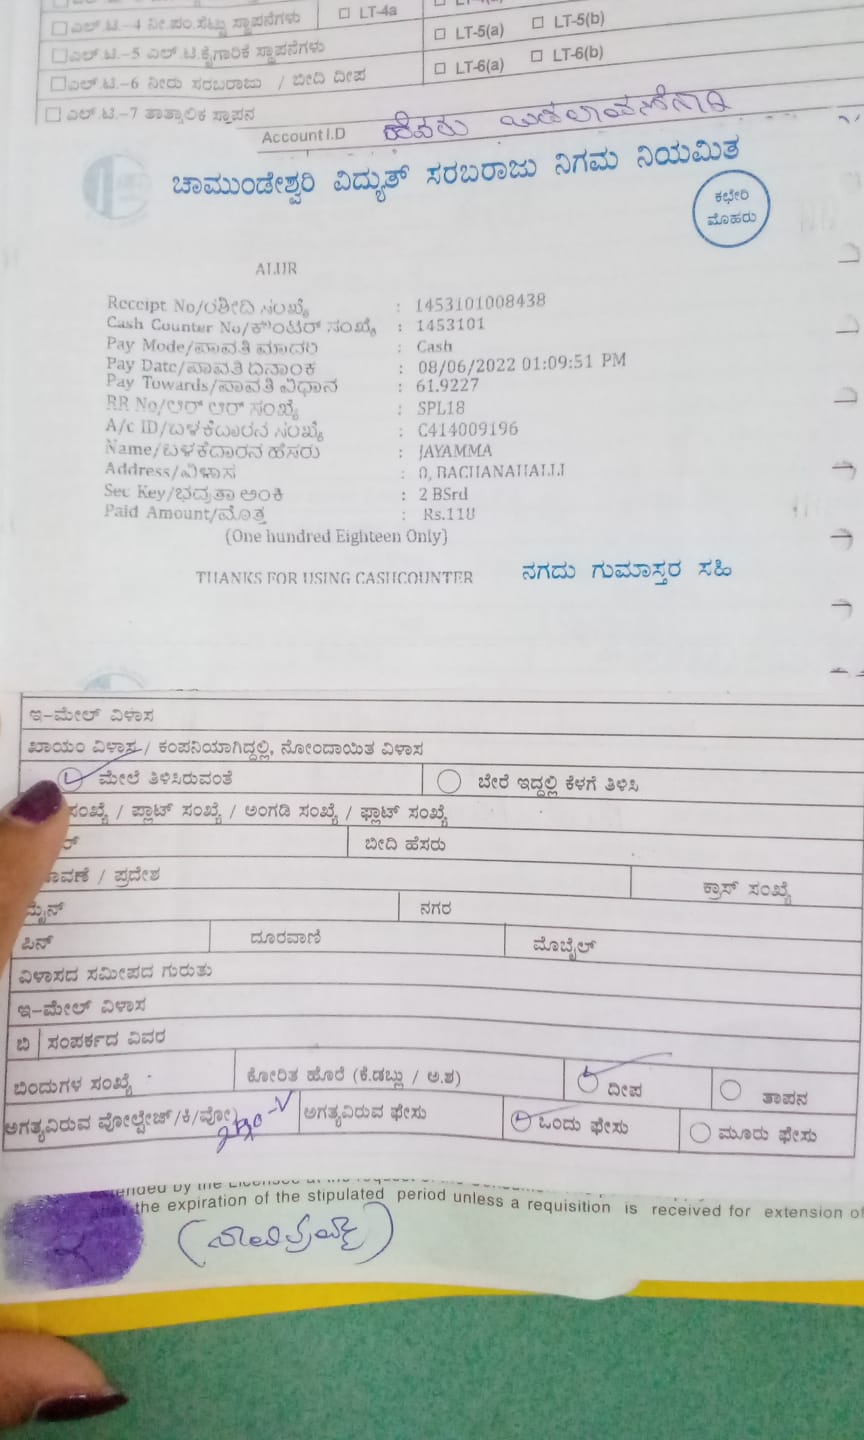 ಎಲ್.ಟಿ.-4 ನೀ.ಪಂ.ಸೆಟ್ಟು ಸ್ಥಾಪನೆಗಳು ☐ LT-4a
☐ LT-5(a) ☐ LT-5(b)
☐ ಎಲ್.ಟಿ.-5 ಎಲ್.ಟಿ.ಕೈಗಾರಿಕೆ ಸ್ಥಾಪನೆಗಳು
☐ LT-6(a) ☐ LT-6(b)
☐ ಎಲ್.ಟಿ.-6 ನೀರು ಸರಬರಾಜು / ಬೀದಿ ದೀಪ
☐ ಎಲ್.ಟಿ.-7 ತಾತ್ಕಾಲಿಕ ಸ್ಥಾಪನ
Account I.D
ಚಾಮುಂಡೇಶ್ವರಿ ವಿದ್ಯುತ್ ಸರಬರಾಜು ನಿಗಮ ನಿಯಮಿತ
ಕಛೇರಿ
ಮೊಹರು
ALUR
Receipt No/ರಶೀದಿ ಸಂಖ್ಯೆ : 1453101008438
Cash Counter No/ಕೌಂಟರ್ ಸಂಖ್ಯೆ : 1453101
Pay Mode/ಪಾವತಿ ಮಾದರಿ : Cash
Pay Date/ಪಾವತಿ ದಿನಾಂಕ : 08/06/2022 01:09:51 PM
Pay Towards/ಪಾವತಿ ವಿಧಾನ : 61.9227
RR No/ಆರ್ ಆರ್ ಸಂಖ್ಯೆ : SPL18
A/c ID/ಬಳಕೆದಾರನ ಸಂಖ್ಯೆ : C414009196
Name/ಬಳಕೆದಾರನ ಹೆಸರು : JAYAMMA
Address/ವಿಳಾಸ : 0, BACHANAHALLI
Sec Key/ಭದ್ರತಾ ಅಂಕಿ : 2 BSrd
Paid Amount/ಮೊತ್ತ : Rs.118
(One hundred Eighteen Only)
THANKS FOR USING CASHCOUNTER ನಗದು ಗುಮಾಸ್ತರ ಸಹಿ
ಇ-ಮೇಲ್ ವಿಳಾಸ
ಖಾಯಂ ವಿಳಾಸ / ಕಂಪನಿಯಾಗಿದ್ದಲ್ಲಿ, ನೋಂದಾಯಿತ ವಿಳಾಸ
ಮೇಲೆ ತಿಳಿಸಿರುವಂತೆ ಬೇರೆ ಇದ್ದಲ್ಲಿ ಕೆಳಗೆ ತಿಳಿಸಿ
ಸಂಖ್ಯೆ / ಪ್ಲಾಟ್ ಸಂಖ್ಯೆ / ಅಂಗಡಿ ಸಂಖ್ಯೆ / ಫ್ಲಾಟ್ ಸಂಖ್ಯೆ
ಬೀದಿ ಹೆಸರು
ಾವಣೆ / ಪ್ರದೇಶ ಕ್ರಾಸ್ ಸಂಖ್ಯೆ
ಮೈನ್ ನಗರ
ಪಿನ್ ದೂರವಾಣಿ ಮೊಬೈಲ್
ವಿಳಾಸದ ಸಮೀಪದ ಗುರುತು
ಇ-ಮೇಲ್ ವಿಳಾಸ
ಬಿ ಸಂಪರ್ಕದ ವಿವರ
ಬಿಂದುಗಳ ಸಂಖ್ಯೆ ಕೋರಿತ ಹೊರೆ (ಕೆ.ಡಬ್ಲು / ಅ.ಶ) ದೀಪ ತಾಪನ
ಅಗತ್ಯವಿರುವ ವೋಲ್ಟೇಜ್/ಕಿ/ವೋ) ಅಗತ್ಯವಿರುವ ಫೇಸು ಒಂದು ಫೇಸು ಮೂರು ಫೇಸು
the expiration of the stipulated period unless a requisition is received for extension of